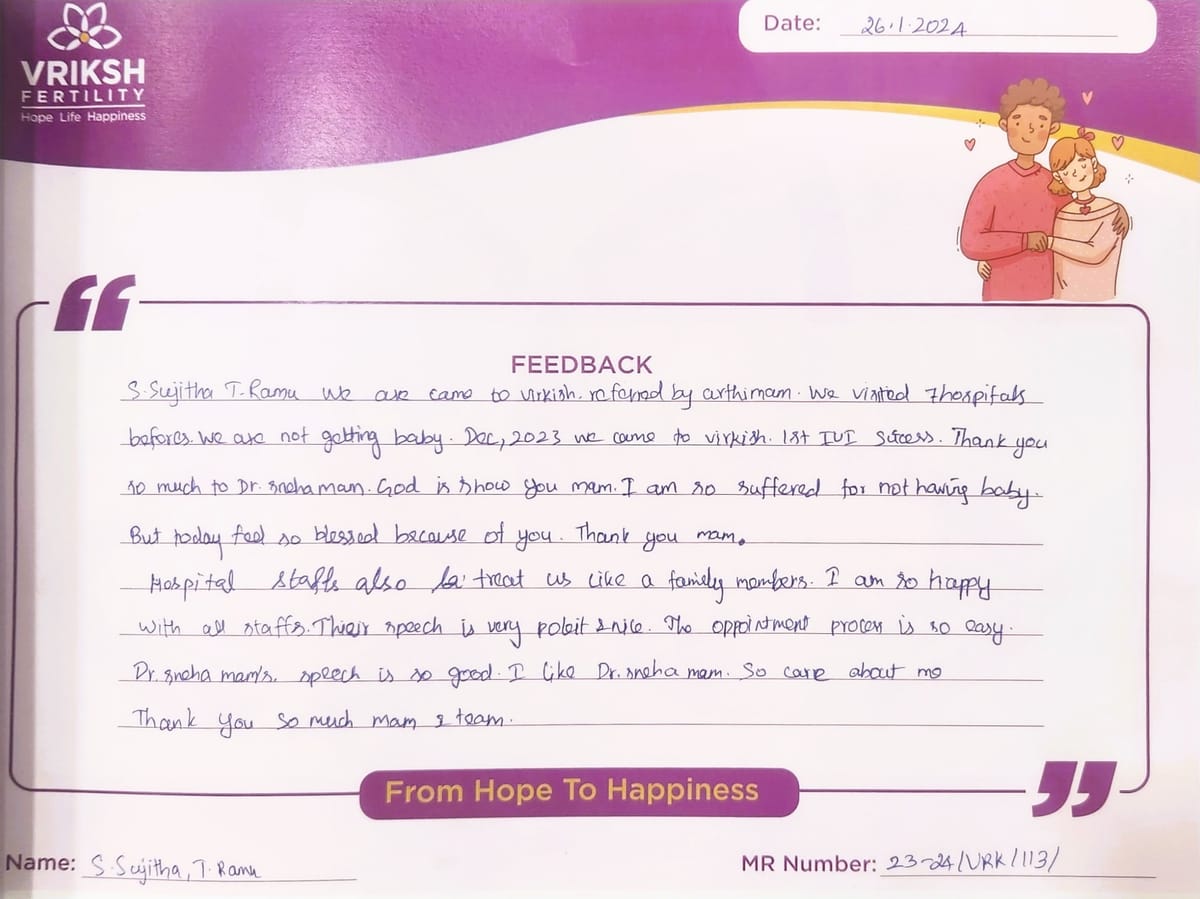 VRIKSH
FERTILITY
Hope Life Happiness
Date: 26.1.2024
FEEDBACK
S.Sujitha T.Ramu We are came to virkish. referred by arthimam. We visited 7hospitals
befores. We are not getting baby. Dec, 2023 we came to virkish. 1st IUI Sucess. Thank you
so much to Dr. sneha mam. God is show you mam. I am so suffered for not having baby.
But today feel so blessed because of you. Thank you mam.
Hospital staffs also treat us like a family members. I am so happy
with all staffs. Their speech is very poleit & nice. The appointment process is so easy.
Dr. sneha mam's. speech is so good. I like Dr. sneha mam. So care about me
Thank you so much mam & team.
From Hope To Happiness
Name: S.Sujitha, T.Ramu
MR Number: 23-24/VRK/113/